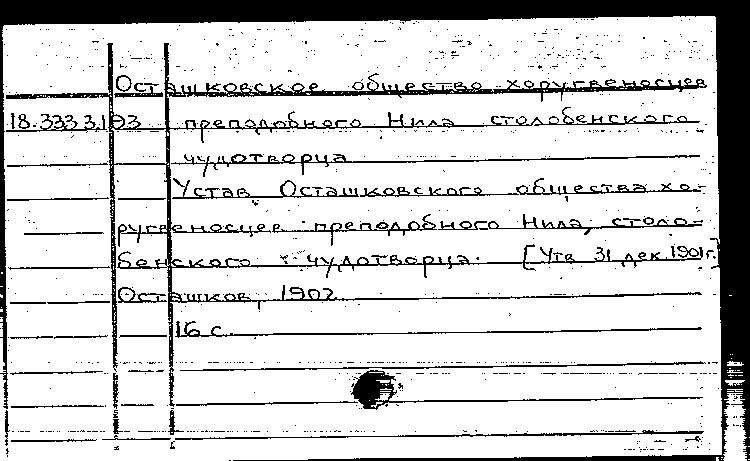 Осташковское общество хоругвеносцев
18.333.3.193 преподобного Нила столобенского
чудотворца
Устав Осташковского общества хо-
ругвеносцев преподобного Нила, столо-
бенского чудотворца. [Утв 31 дек 1901г.]
Осташков, 1902
16 с.